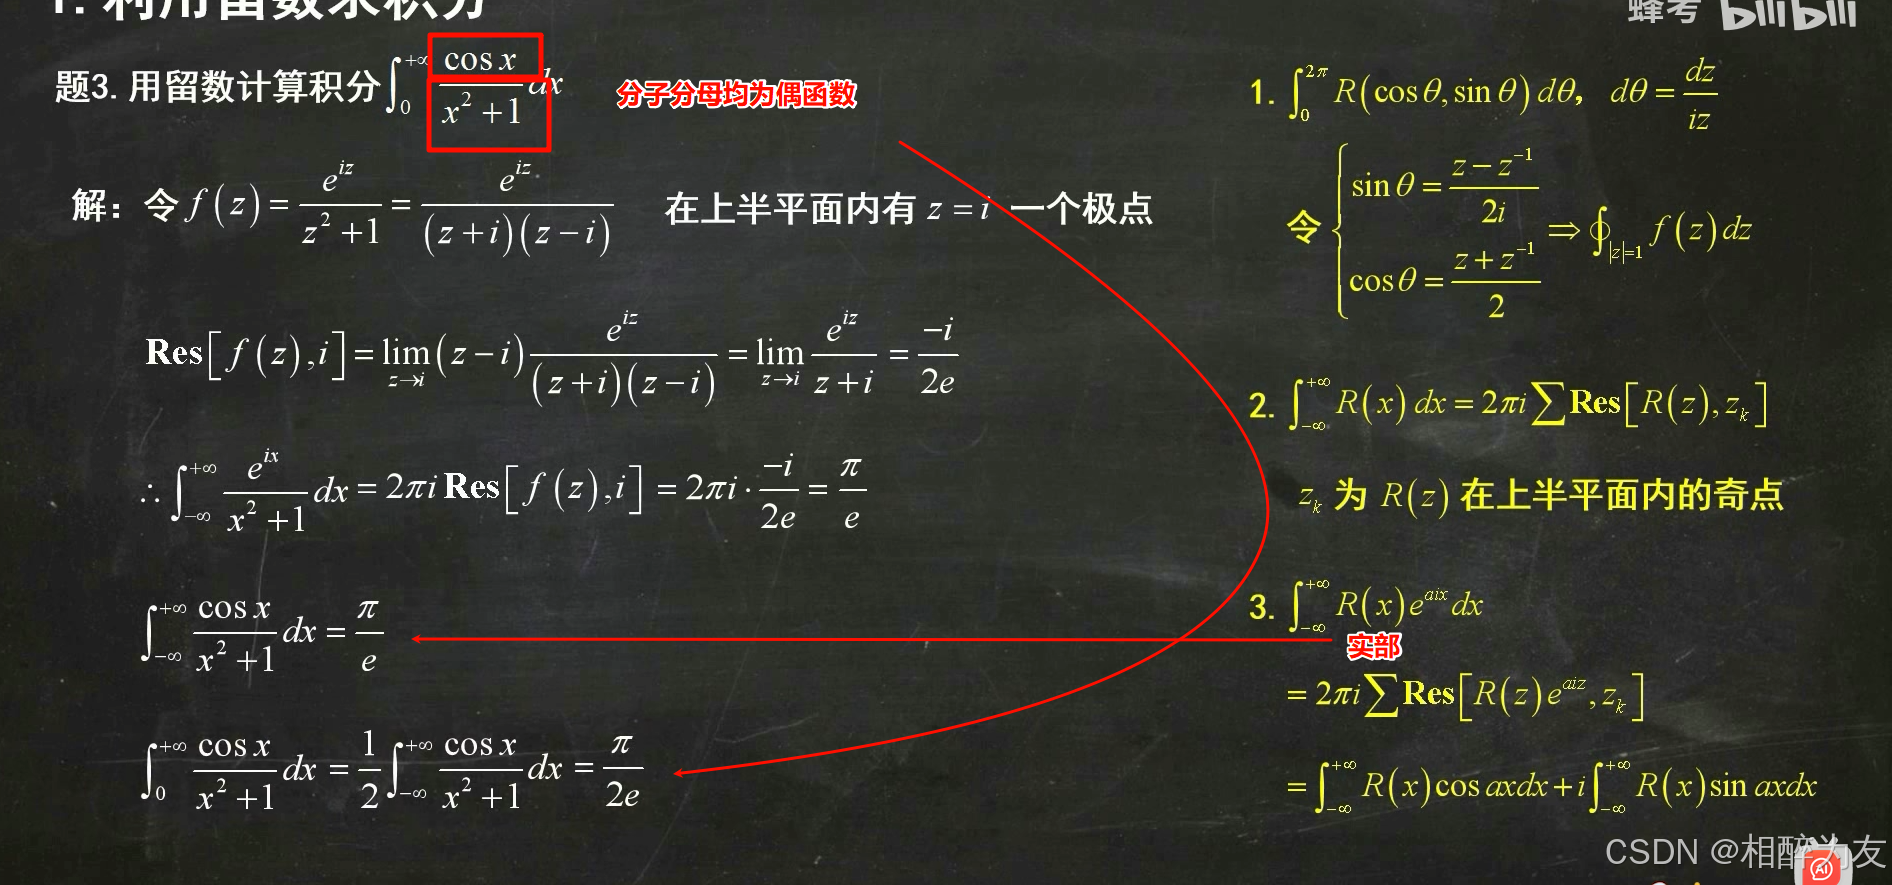 1. 利用留数求积分
蜂考 bilibili
题3. 用留数计算积分 ∫₀^{+∞} cos x / (x² + 1) dx
分子分母均为偶函数
解：令 f(z) = e^{iz} / (z² + 1) = e^{iz} / ((z + i)(z − i)) 在上半平面内有 z = i 一个极点
Res[f(z), i] = lim_{z→i} (z − i) e^{iz} / ((z + i)(z − i)) = lim_{z→i} e^{iz} / (z + i) = −i / 2e
∴ ∫_{−∞}^{+∞} e^{ix} / (x² + 1) dx = 2πi Res[f(z), i] = 2πi · −i / 2e = π / e
∫_{−∞}^{+∞} cos x / (x² + 1) dx = π / e
∫₀^{+∞} cos x / (x² + 1) dx = 1/2 ∫_{−∞}^{+∞} cos x / (x² + 1) dx = π / 2e
1. ∫₀^{2π} R(cos θ, sin θ) dθ， dθ = dz / iz
令 { sin θ = (z − z^{−1}) / 2i
cos θ = (z + z^{−1}) / 2 ⇒ ∮_{|z|=1} f(z) dz
2. ∫_{−∞}^{+∞} R(x) dx = 2πi ∑ Res[R(z), z_k]
z_k 为 R(z) 在上半平面内的奇点
3. ∫_{−∞}^{+∞} R(x) e^{aix} dx
实部
= 2πi ∑ Res[R(z) e^{aiz}, z_k]
= ∫_{−∞}^{+∞} R(x) cos axdx + i ∫_{−∞}^{+∞} R(x) sin axdx
CSDN @相醉为友
AI